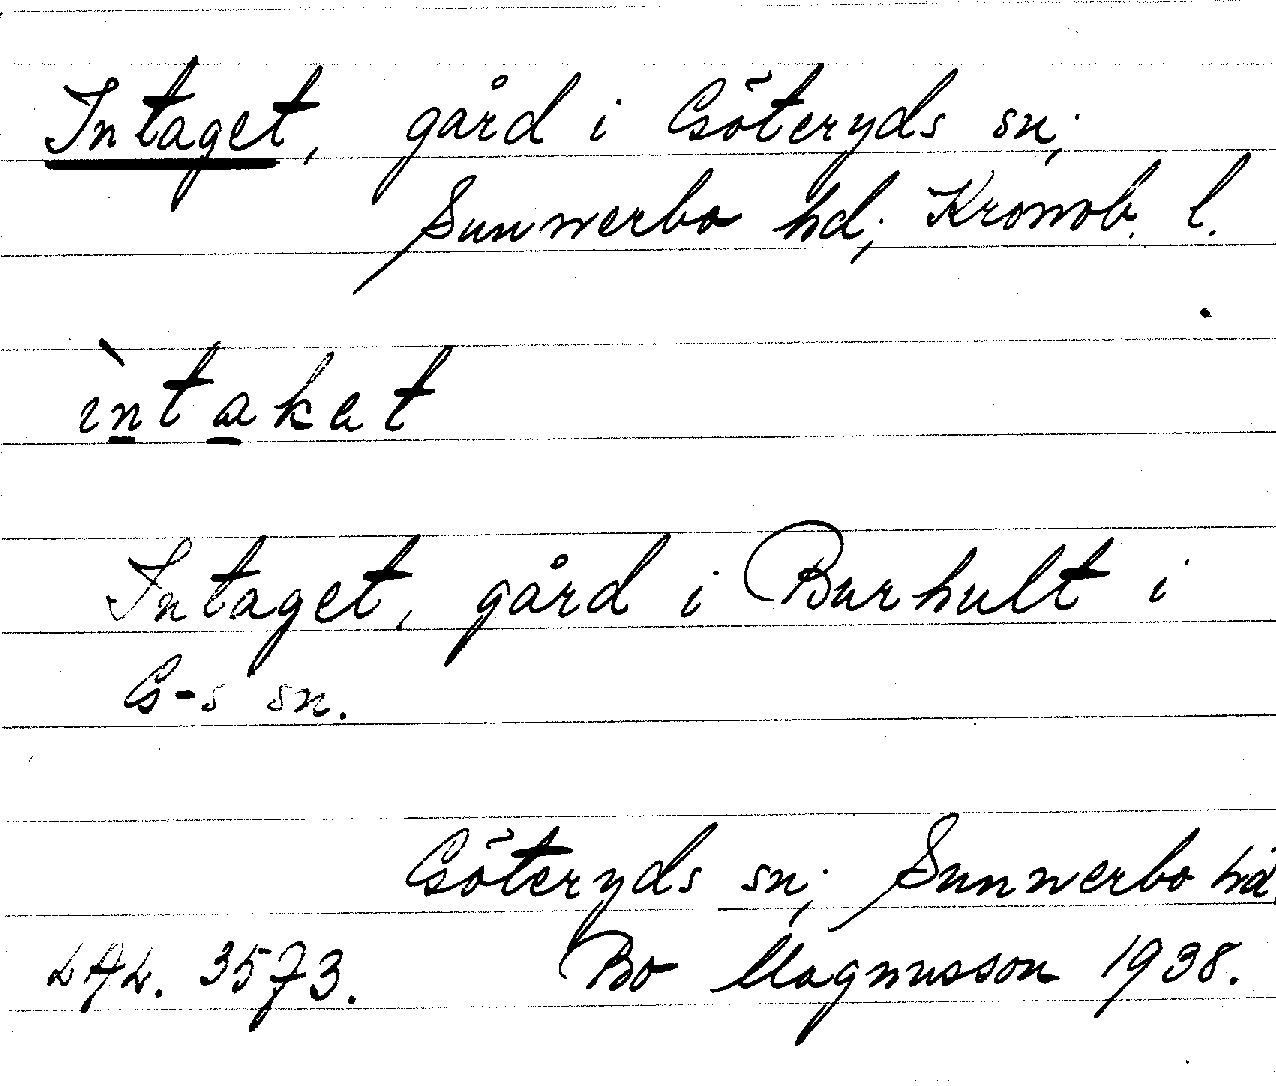 Intaget, gård i Göteryds sn;
Sunnerbo hd; Kronob. l.
ìntakat
Intaget, gård i Burhult i
G-s sn.
Göteryds sn; Sunnerbo hd
LAL. 3573. Bo Magnusson 1938.